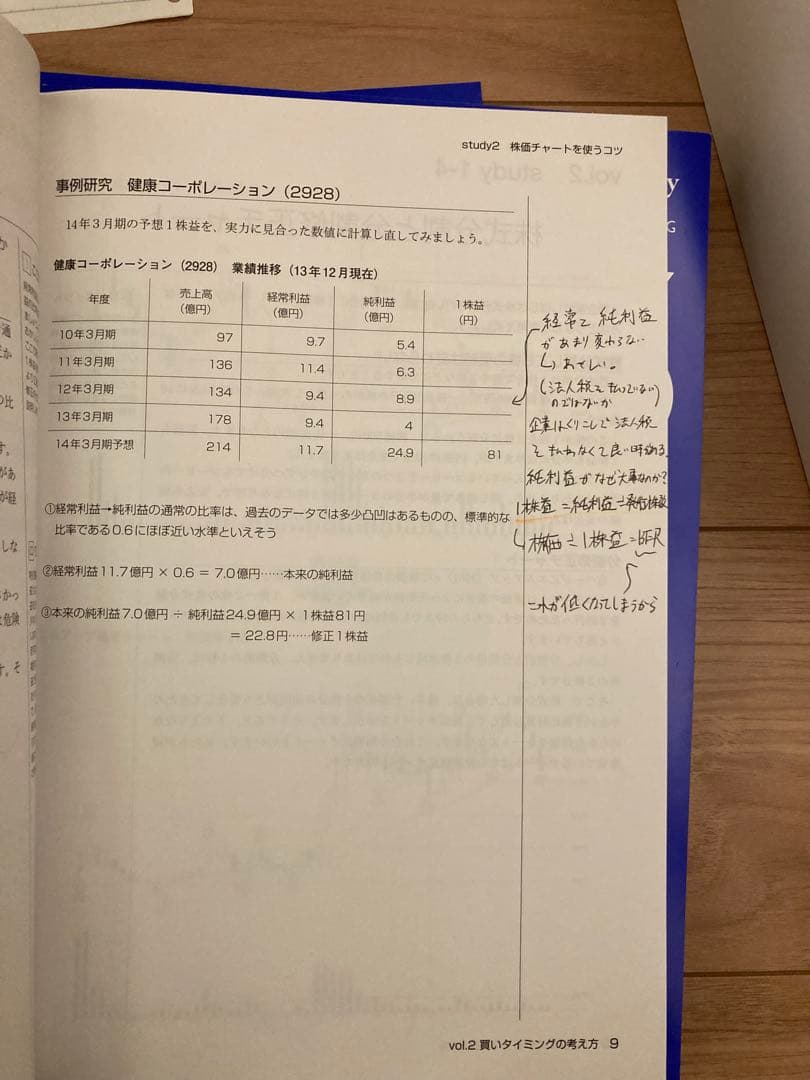 study2 株価チャートを使うコツ
事例研究 健康コーポレーション（2928）
14年3月期の予想1株益を、実力に見合った数値に計算し直してみましょう。
健康コーポレーション（2928） 業績推移（13年12月現在）
年度 売上高（億円） 経常利益（億円） 純利益（億円） 1株益（円）
10年3月期 97 9.7 5.4
11年3月期 136 11.4 6.3
12年3月期 134 9.4 8.9
13年3月期 178 9.4 4
14年3月期予想 214 11.7 24.9 81
①経常利益→純利益の通常の比率は、過去のデータでは多少凸凹はあるものの、標準的な
比率である0.6にほぼ近い水準といえそう
②経常利益11.7億円 × 0.6 = 7.0億円……本来の純利益
③本来の純利益7.0億円 ÷ 純利益24.9億円 × 1株益81円
= 22.8円……修正1株益
経常と純利益
があまり変わらない
↳あやしい。
(法人税を払っていない)
のではないか
企業はくりこしで法人税
を払わなくて良い時がある。
純利益がなぜ大事なのか?
1株益=純利益÷発行株数
↳株価÷1株益=PER
これが低くなってしまうから
vol.2 買いタイミングの考え方 9